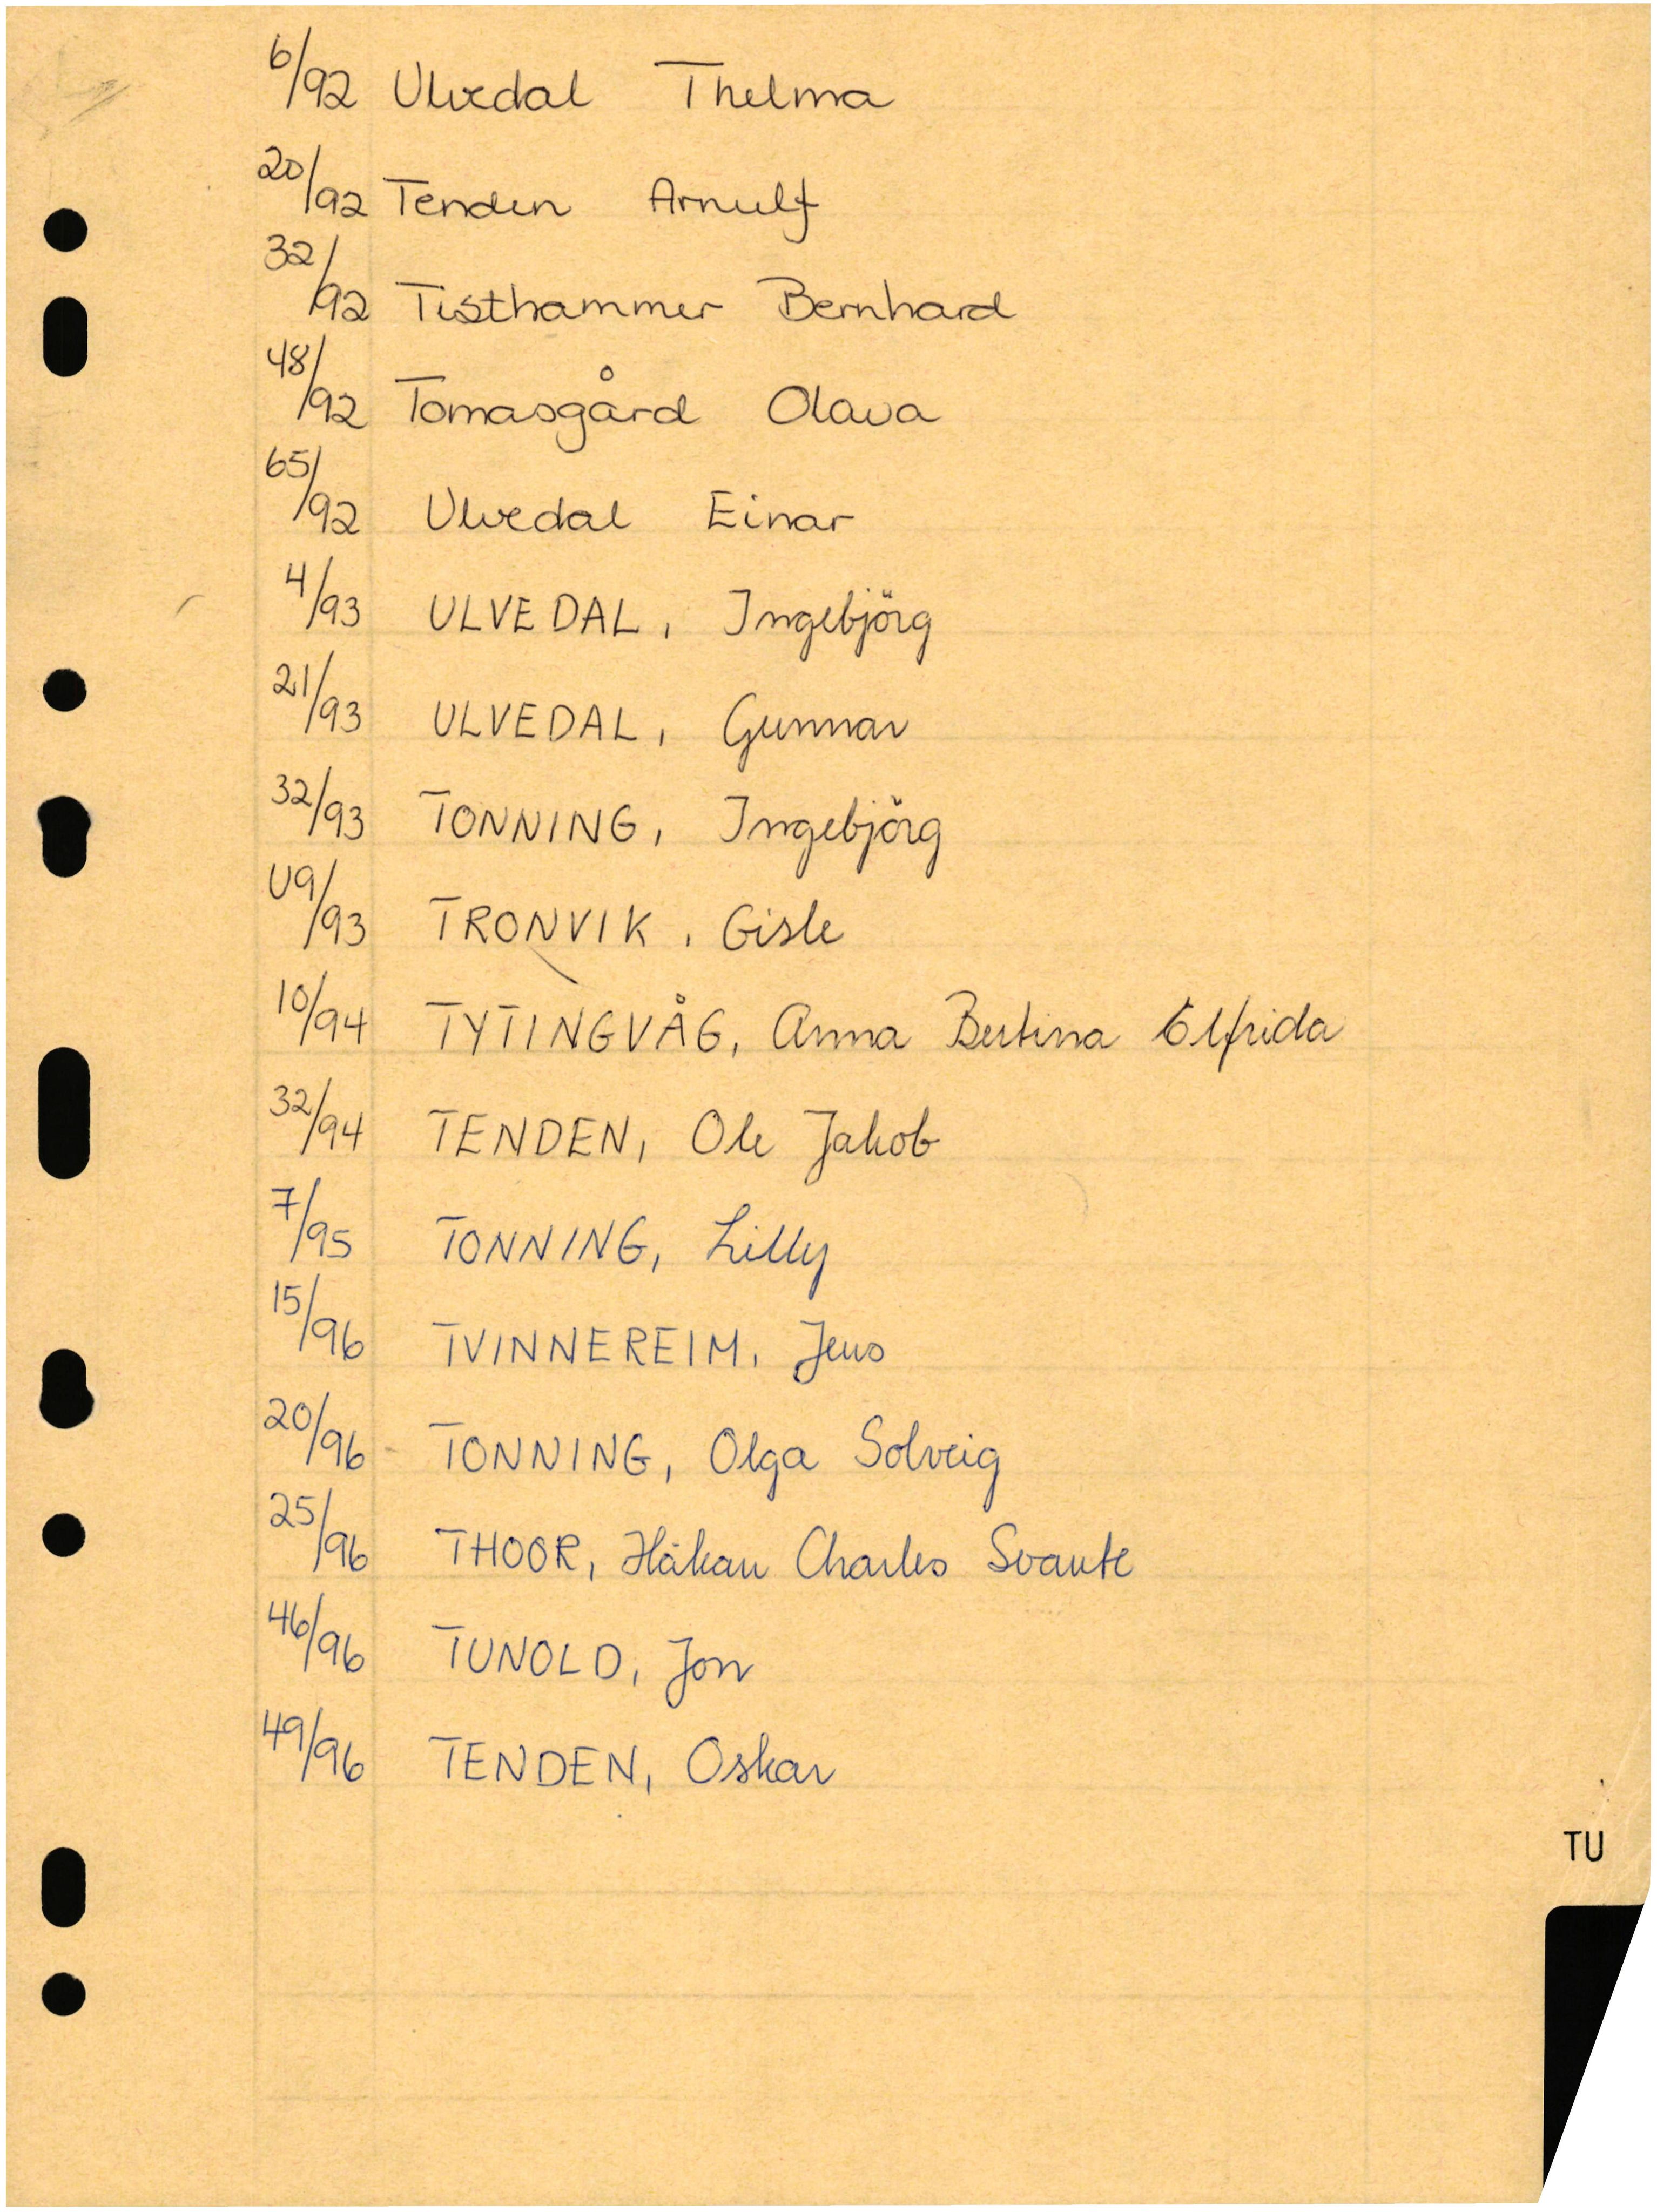 6/92 Ulvedal Thelma
20/92 Tenden Arnulf
32/92 Tisthammer Bernhard
48/92 Tomasgård Olava
65/92 Ulvedal Einar
4/93 ULVEDAL, Ingebjörg
21/93 ULVEDAL, Gunnar
32/93 TONNING, Ingebjörg
49/93 TRONVIK, Gisle
10/94 TYTINGVÅG, Anna Bertina Elfrida
32/94 TENDEN, Ole Jakob
7/95 TONNING, Lilly
15/96 TVINNEREIM, Jens
20/96 TONNING, Olga Solveig
25/96 THOOR, Håkan Charles Svante
46/96 TUNOLD, Jon
49/96 TENDEN, Oskar
TU